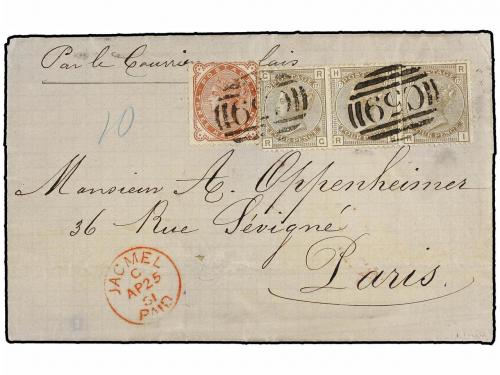 Par le Courrier
10
C R H R
C59 059
R C R R I
Monsieur A. Oppenheimer
36 Rue Sévigné
Paris.
JACMEL
C
AP 25
81
PAID